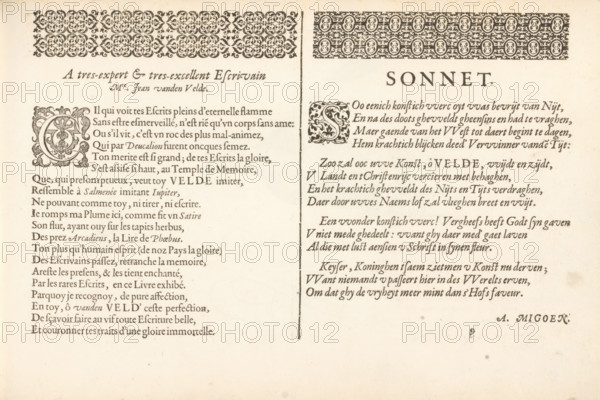 A tres-expert & tres-excellent Escrivain
Mr. Jean vanden Velde.
Cil qui voit tes Escrits pleins d'eternelle flamme
Sans estre esmerveillé, n'est rié qu'vn corps sans ame:
Ou s'il vit, c'est vn roc des plus mal-animez,
Qui par Deucalion furent oncques semez.
Ton merite est si grand; de tes Escrits la gloire,
S'est assise si haut, au Temple de Memoire,
Que, qui presomptueux, veut toy VELDE imiter,
Ressemble à Salmonée imitant Iupiter,
Ne pouvant comme toy, ni tirer, ni escrire.
Je romps ma Plume ici, comme fit vn Satire
Son flut, ayant ouy sur les tapics herbus,
Des prez Arcadiens, la Lire de Phœbus.
Ton plus qu'humain esprit (de noz Pays la gloire)
Des Escrivains passez, retranche la memoire,
Areste les presens, & les tient enchanté,
Par les rares Escrits, en ce Livre exhibé.
Parquoy je recognoy, de pure affection,
En toy, ô vanden VELD' ceste perfection,
De sçavoir faire au vif toute Escriture belle,
Et couronner tes traits d'une gloire immortelle.
SONNET.
Soo eenich konstich vverc oyt vvas bevrijt van Nijt,
En na des doots ghevveldt gheensins en had te vraghen,
Maer gaende van het VVest tot daert begint te dagen,
Hem krachtich blijcken deed Vervvinner vandē Tijt:
Zoo zal ooc uvve Konst, ô VELDE, vvijdt en zijdt,
V Landt en Christenrijc vercieren met behaghen,
En het krachtich ghevveldt des Nijts en Tijts verdraghen,
Daer door uvves Naems lof zal vlieghen breet en vvijt.
Een vvonder konstich vverc! Vergheefs heeft Godt syn gaven
V niet mede ghedeelt: vvant ghy daer med gaet laven
Al die met lust aensien v Schrift in synen fleur.
Keyser, Koninghen tsaem zietmen v Konst nu derven;
VVant niemandt v passeert hier in des VVerelts erven,
Om dat ghy de vryheyt meer mint dan s'Hofs faveur.
A. MIGOEN.